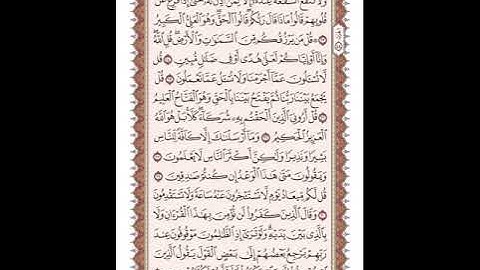 ولا تنفع الشفعة عنده إلا لمن أذن له حتى إذا فزع عن
قلوبهم قالوا ماذا قال ربكم قالوا الحق وهو العلي الكبير
قل من يرزقكم من السموت والأرض قل الله
وإنا أو إياكم لعلى هدى أو في ضلل مبين قل
لا تسئلون عما أجرمنا ولا نسئل عما تعملون قل
يجمع بيننا ربنا ثم يفتح بيننا بالحق وهو الفتاح العليم
قل أروني الذين ألحقتم به شركاء كلا بل هو الله
العزيز الحكيم وما أرسلنك إلا كافة للناس
بشيرا ونذيرا ولكن أكثر الناس لا يعلمون
ويقولون متى هذا الوعد إن كنتم صدقين
قل لكم ميعاد يوم لا تستءخرون عنه ساعة ولا تستقدمون
وقال الذين كفروا لن نؤمن بهذا القرءان ولا
بالذي بين يديه ولو ترى إذ الظلمون موقوفون عند
ربهم يرجع بعضهم إلى بعض القول يقول الذين